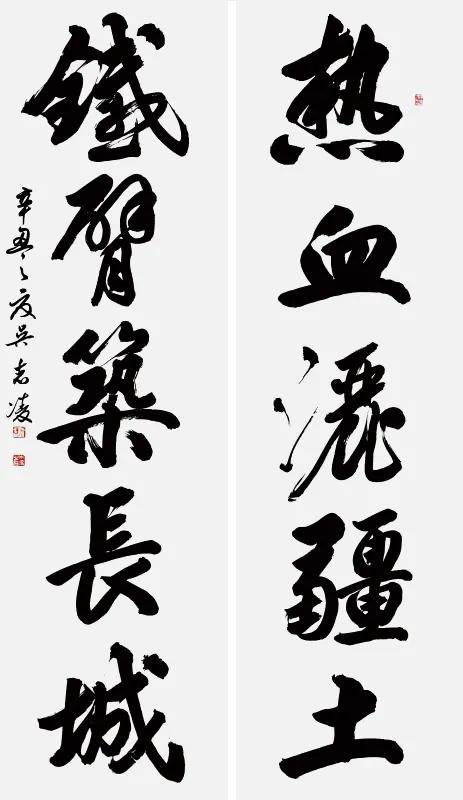 熱血灑疆土
鐵臂築長城
辛丑之夏吳志凌